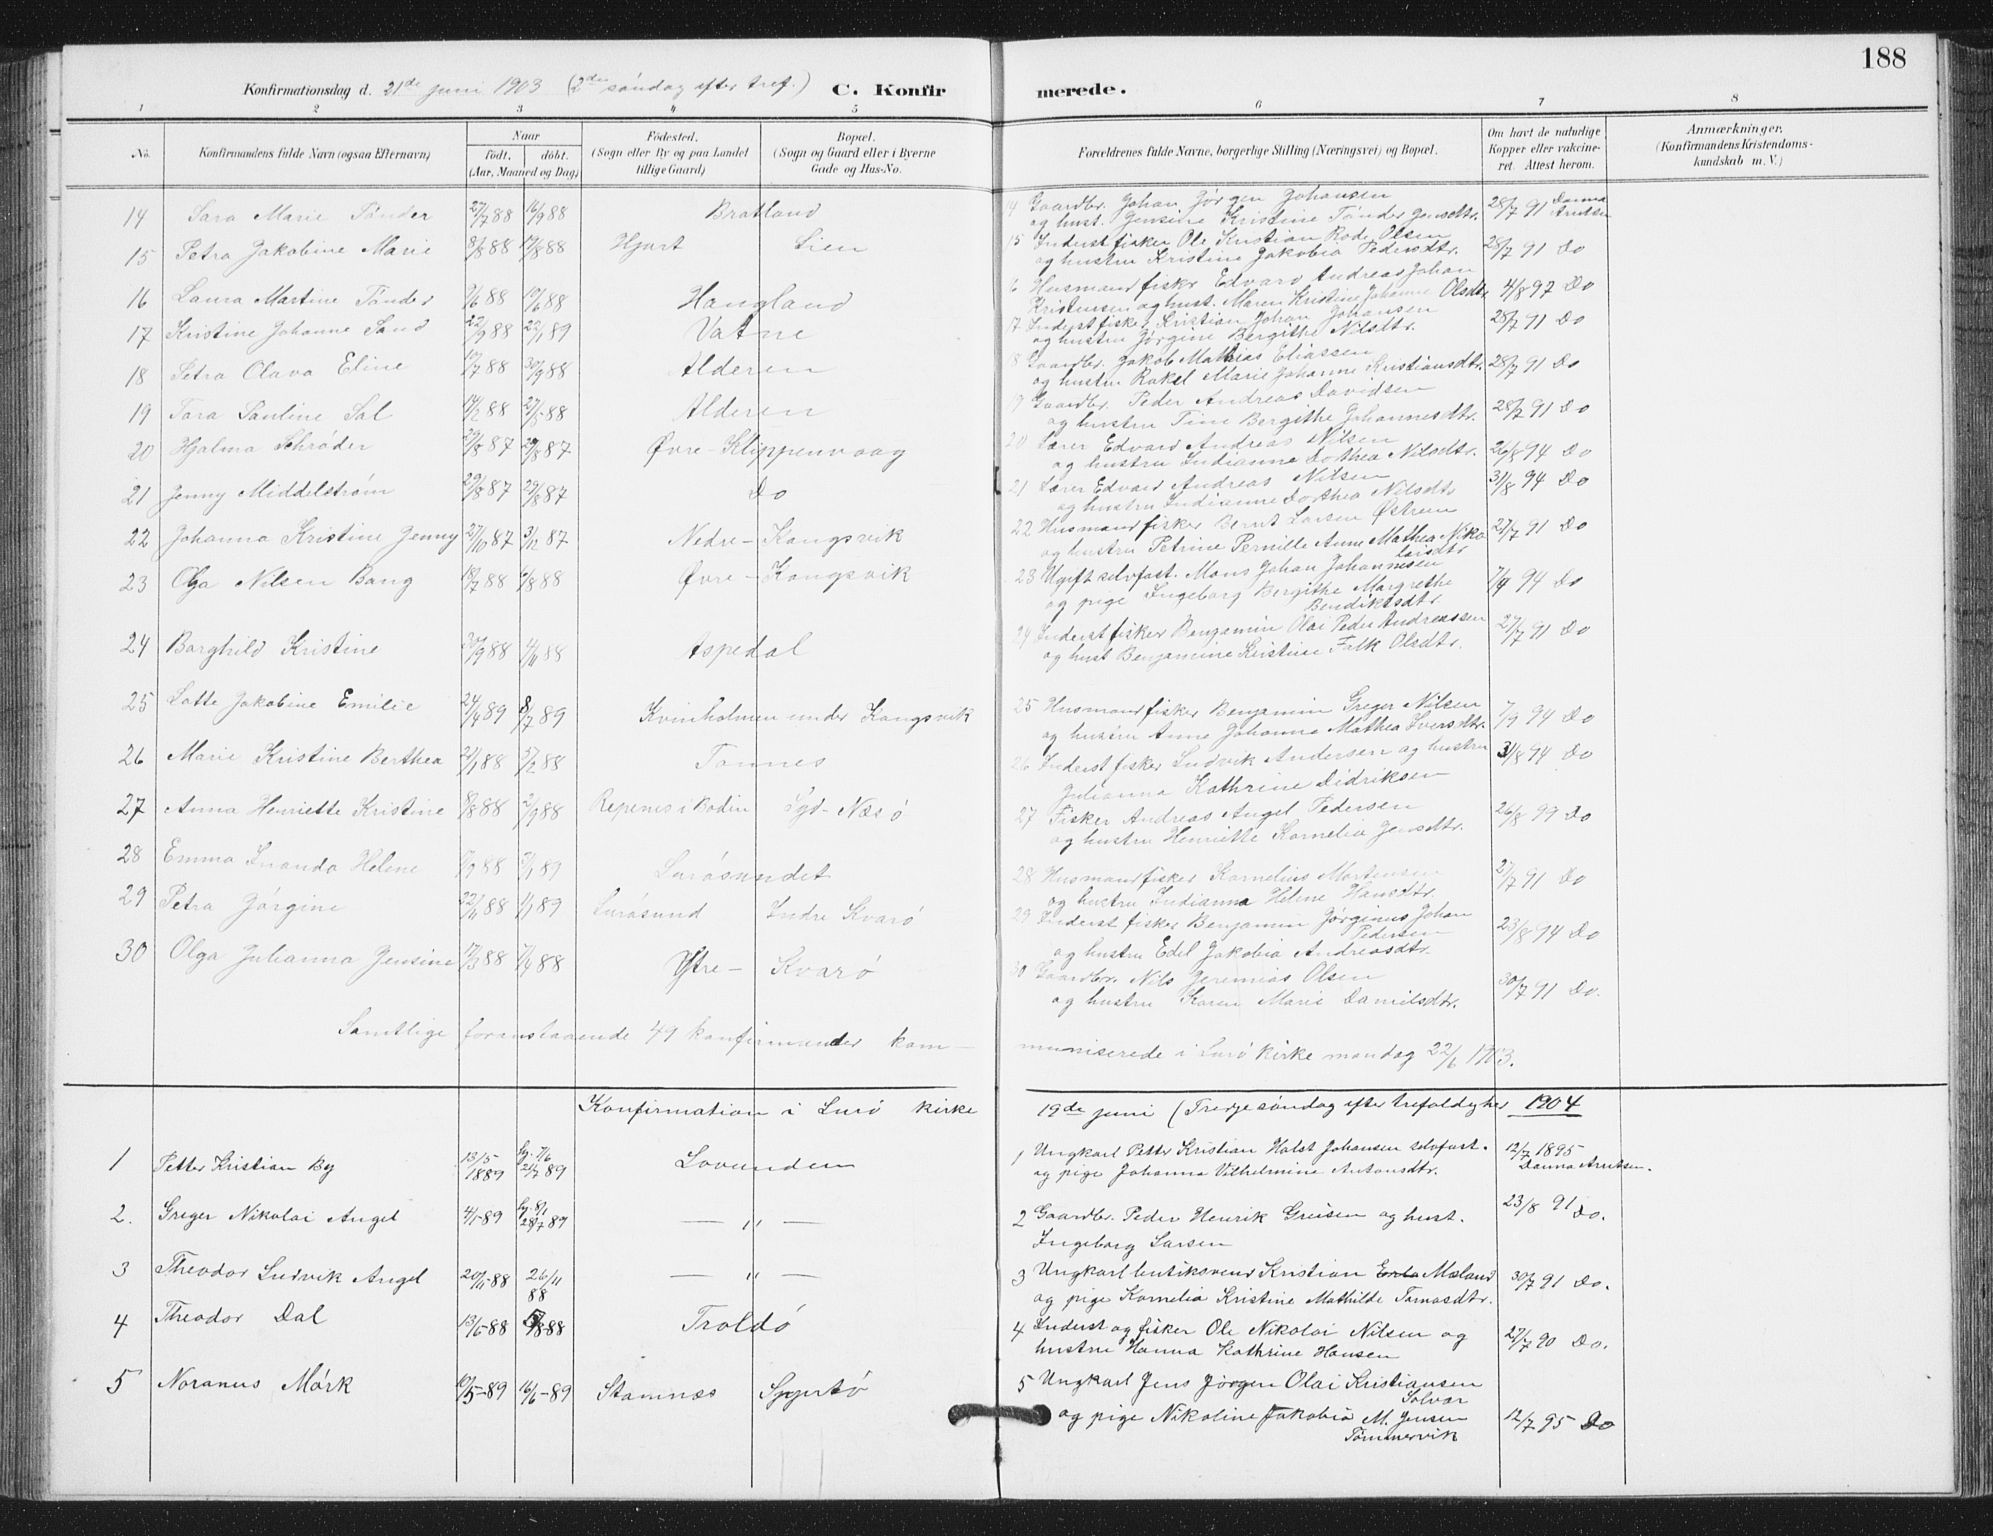 188
Konfirmationsdag d. 21de juni 1903 (2den søndag efter tref.) C. Konfirmerede.
1 2 3 4 5 6 7 8
No. Konfirmandens fulde Navn (ogsaa Efternavn) Naar født, døbt. (Aar, Maaned og Dag) Fødested. (Sogn eller By og paa Landet tillige Gaard) Bopæl. (Sogn og Gaard eller i Byerne Gade og Hus-No. Forældrenes fulde Navne, borgerlige Stilling (Næringsvei) og Bopæl. Om havt de naturlige Kopper eller vakcineret. Attest herom. Anmærkninger. (Konfirmandens Kristendomskundskab m. V.)
14 Sara Marie Tønder 27/7 88 16/9 88 Bratland 14 Gaardbr. Johan Jørgen Johansen 28/7 91 Danna Arntsen
og hust. Jensine Kristine Tønder Jensdtr.
15 Petra Jakobine Marie 8/8 88 19/8 88 Hjart Lien 15 Inderst fisker Ole Kristian Rode Olsen 28/7 91 Do
og hustru Kristine Jakobia Pedersdtr.
16 Laura Martine Tønder 9/6 88 10/6 88 Haugland 16 Husmand fisker Edvard Andreas Johan 4/8 97 Do
Kristensen og hust. Maren Kristine Johanne Olsdtr.
17 Kristine Johanne Sand 22/9 88 22/1 89 Vatne 17 Inderst fisker Kristian Johan Johansen 28/7 91 Do
og hustru Jørgine Bergithe Nilsdtr.
18 Petra Olava Eline 10/7 88 30/9 88 Alderen 18 Gaardbr. Jakob Mathias Eliassen 28/7 91 Do
og hustru Rakel Marie Johanne Kristiansdtr.
19 Tora Pauline Sal 14/2 88 27/5 88 Alderen 19 Gaardbr. Peder Andreas Davidsen 28/7 91 Do
og hustru Tine Bergithe Johannesdtr.
20 Hjalma Schrøder 29/8 87 29/8 87 Øvre-Klippenvaag 20 Lærer Edvard Andreas Nilsen 26/8 94 Do
og hustru Indianna Dorthea Nilsdtr.
21 Jenny Middelstrøm 29/8 87 29/8 87 Do 21 Lærer Edvard Andreas Nilsen 31/8 94 Do
og hustru Indianne Dorthea Nilsdtr
22 Johanna Kristine Jenny 27/10 87 3/12 87 Nedre-Kongsvik 22 Husmand fisker Bernt Larsen Østrem 27/7 91 Do
og hustru Petrine Pernille Anne Mathea Nikolaisdtr
23 Olga Nilsen Bang 18/7 88 6/8 88 Øvre-Kongsvik 23 Ugift selvfost. Mons Johan Johannesen 7/9 94 Do
og pige Ingeborg Bergithe Margrethe
Bendiktsdtr
24 Borghild Kristine 30/9 88 4/11 88 Aspedal 24 Inderst fisker Benjamin Olai Peder Andreassen 27/7 91 Do
og hust Benjamine Kristine Falk Olsdtr.
25 Lotte Jakobine Emilie 24/4 89 8/7 89 Kvinholmen under Kongsvik 25 Husmand fisker Benjamin Greger Nilsen 7/9 94 Do
og hustru Anne Johanna Mathea Iversdtr.
26 Marie Kristine Berthea 21/1 88 5/2 88 Tonnes 26 Inderst fisker Ludvik Andersen og hustru 31/8 94 Do
Julianna Kathrine Didriksen
27 Anna Henriette Kristine 8/8 88 2/9 88 Repenes i Bodin Syd-Næsø 27 Fisker Andreas Angel Pedersen 26/8 99 Do
og hustru Henriette Kornelia Jensdtr.
28 Emma Helene Lurøsundet 28 Husmand fisker Kornelius Mortensen 27/7 91 Do
og hustru Indianna Helene Hansdtr.
29 Petra Jørgine 22/11 88 1/1 89 Lurøsund Indre Kvarø 29 Inderst fisker Benjamin Jørginus Johan Pedersen 23/8 94 Do
og hustru Edel Jakobia Andreasdtr.
30 Olga Julianna Jensine 17/3 88 7/4 88 Ytre- Kvarø 30 Gaardbr. Nils Jeremias Olsen 30/7 91 Do.
og hustru Karen Marie Danielsdtr.
Samtlige foranstaaende 49 konfirmander kommuniserede i Lurø kirke mandag 22/6 1903.
Konfirmation i Lurø kirke 19de juni (Tredje søndag efter trefoldighed 1904
1 Petter Kristian By 13/5 1889 hj. 7/6 21/7 89 Lovunden 1 Ungkarl Petter Kristian Holst Johansen selvfost. 12/7 1895 Danna Arntsen.
og pige Johanna Vilhelmine Antonsdtr.
2. Greger Nikolai Angel 4/1-89 hj. 8/1 28/7 89 — " — 2 Gaardbr. Peder Henrik Greisen og hust. 23/8 91 Do.
Ingeborg Larsen
3 Theodor Ludvik Angel 20/11-88 26/11 88 — " — 3 Ungkarl butiksvend Kristian Mæland 30/7 91 Do.
og pige Kornelia Kristine Mathilde Tomasdtr.
4 Theodor Dal 13/6-88 5/8-88 Troldø 4 Inderst og fisker Ole Nikolai Nilsen og 27/7 90 Do.
hustru Hanna Kathrine Hansen
5 Noranus Mørk 10/5-89 16/6-89 Stamnæs Sygnstø 5 Ungkarl Jens Jørgen Olai Kristiansen Solvær
og pige Nikoline Jakobia M. Jensen Tømmervik 12/7 95 Do